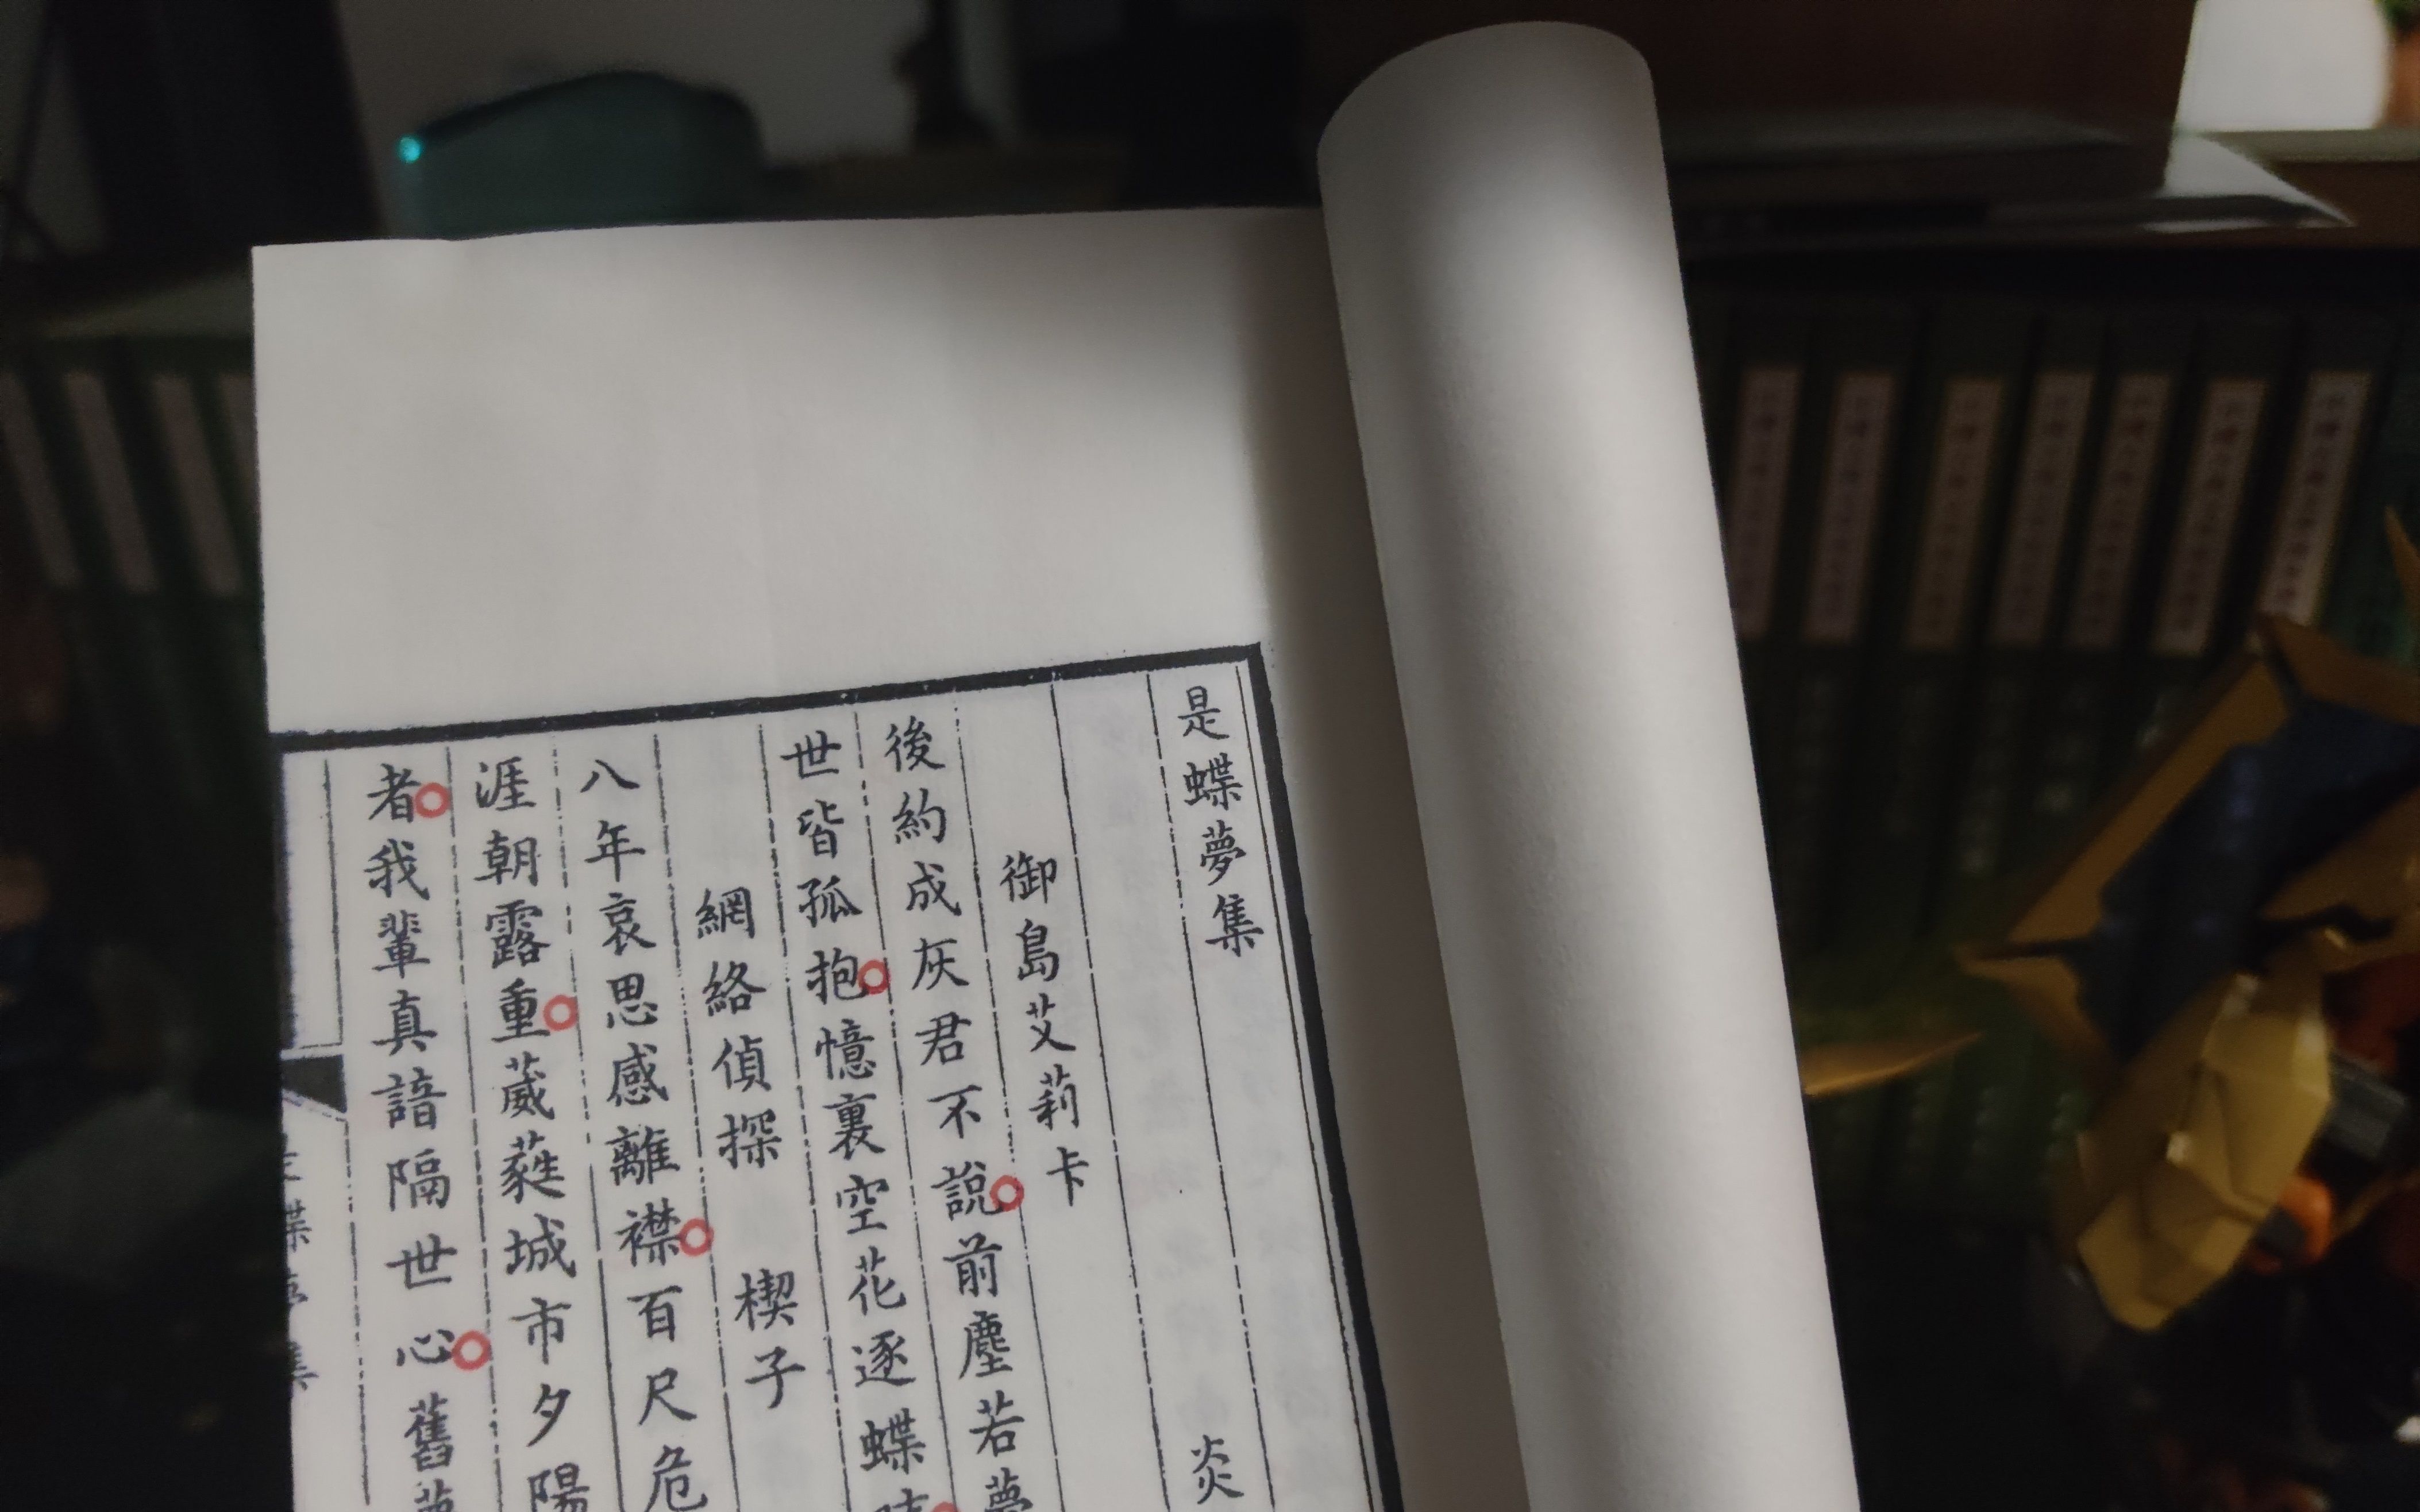 是蝶夢集
炎
御島艾莉卡
後約成灰君不說前塵若夢
世皆孤抱憶裏空花逐蝶
網絡偵探 楔子
八年哀思感離襟百尺危
涯朝露重葳蕤城市夕陽
者我輩真諳隔世心舊夢
蝶夢集